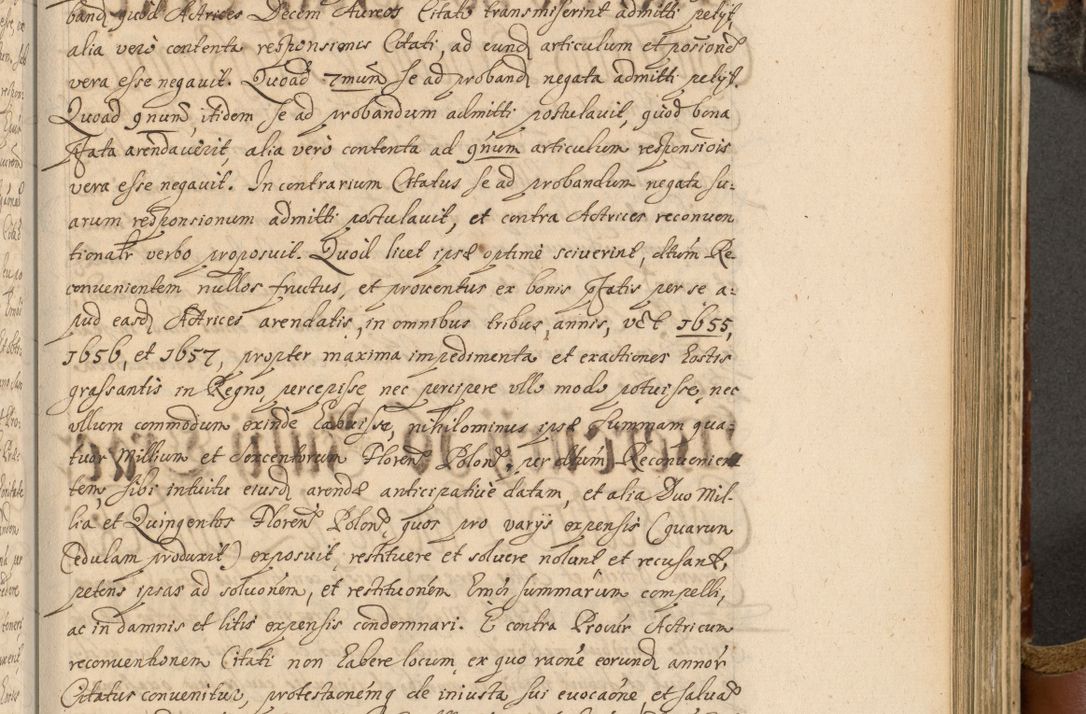 band quod Actrices Decem Aureos Citati transmiserint admitti petijt,
alia verò contenta responsionis Citati, ad eund articulum et posioné
vera esse negauit. Quoad 7mum se ad proband negata admitti petijt.
Quoad 9num, itidem se ad probandum admitti postulauit, quod bona
Pfata arendauerit, alia verò contenta ad 9num articulum responsiois
vera esse negauit. In contrarium Citatus se ad probandum negata su-
arum responsionum admitti postulauit, et contra Actrices reconuen
tionatr verbo proposuit. Quod licet ipse optimè sciuerint, dtum Re-
conuenientem nullos fructus, et prouentus ex bonis Pfatis per se a-
pud easd Actrices arendatis, in omnibus tribus annis, vct 1655,
1656, et 1657, propter maxima impedimenta et exactiones hostis
grassantis in Regno percepisse nec percipere vllo modo potuisse, nec
vllum commodum exinde habuisse, nihilominus ipse summam qua-
tuor Millium et Sexcentorum Floren Polon, per dtum Reconuenien
tem, sibi intuitu eiusd arende anticipatiuè datam, et alia Duo Mil-
lia et Quingentos Floren Polon, quos pro varijs expensis (quarum
Cedulam produxit) exposuit, restituere et soluere nolunt et recusant,
petens ipsas ad soluonem, et restituonem Emdi summarum compelli,
ac in damnis et litis expensis condemnari. E contra Procur Actricum
reconuentionem Citati non habere locum, ex quo raone eorund annor
Citatus conuenitur, protestaonemq de iniusta sui euocaone, et saluas